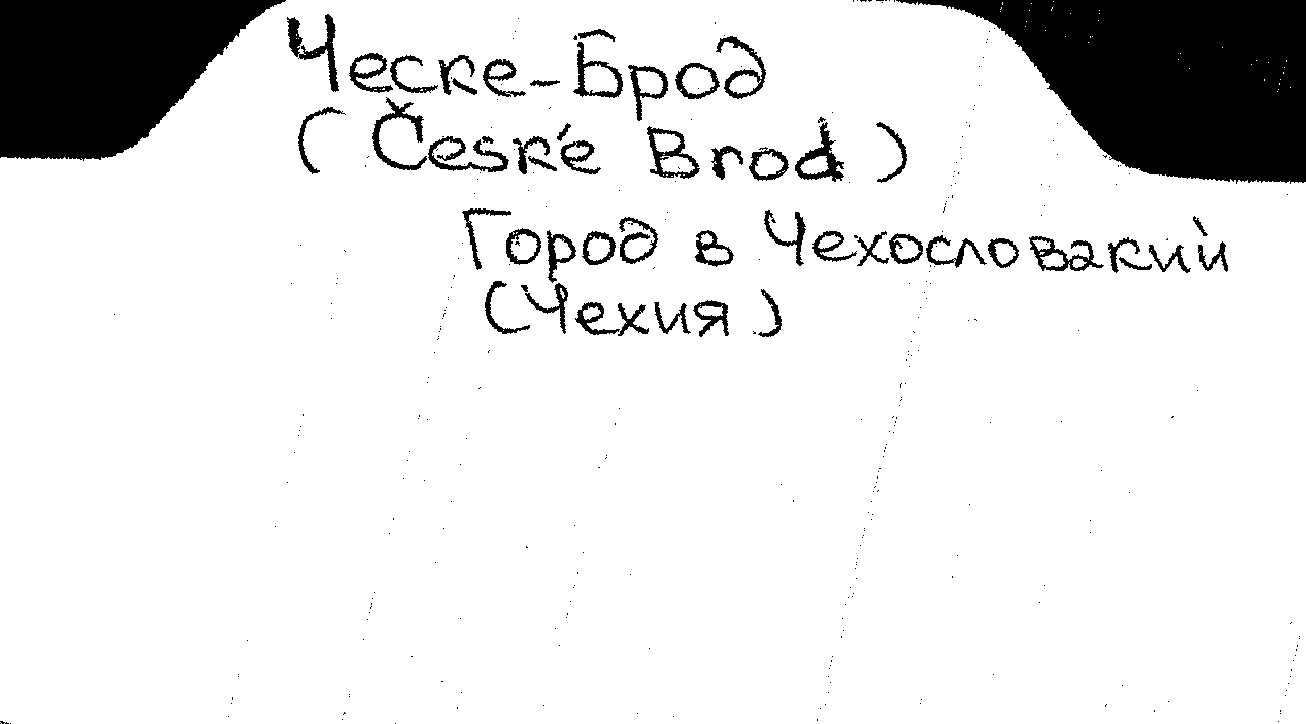 Ческе-Брод
(České Brod)
Город в Чехословакий
(Чехия)